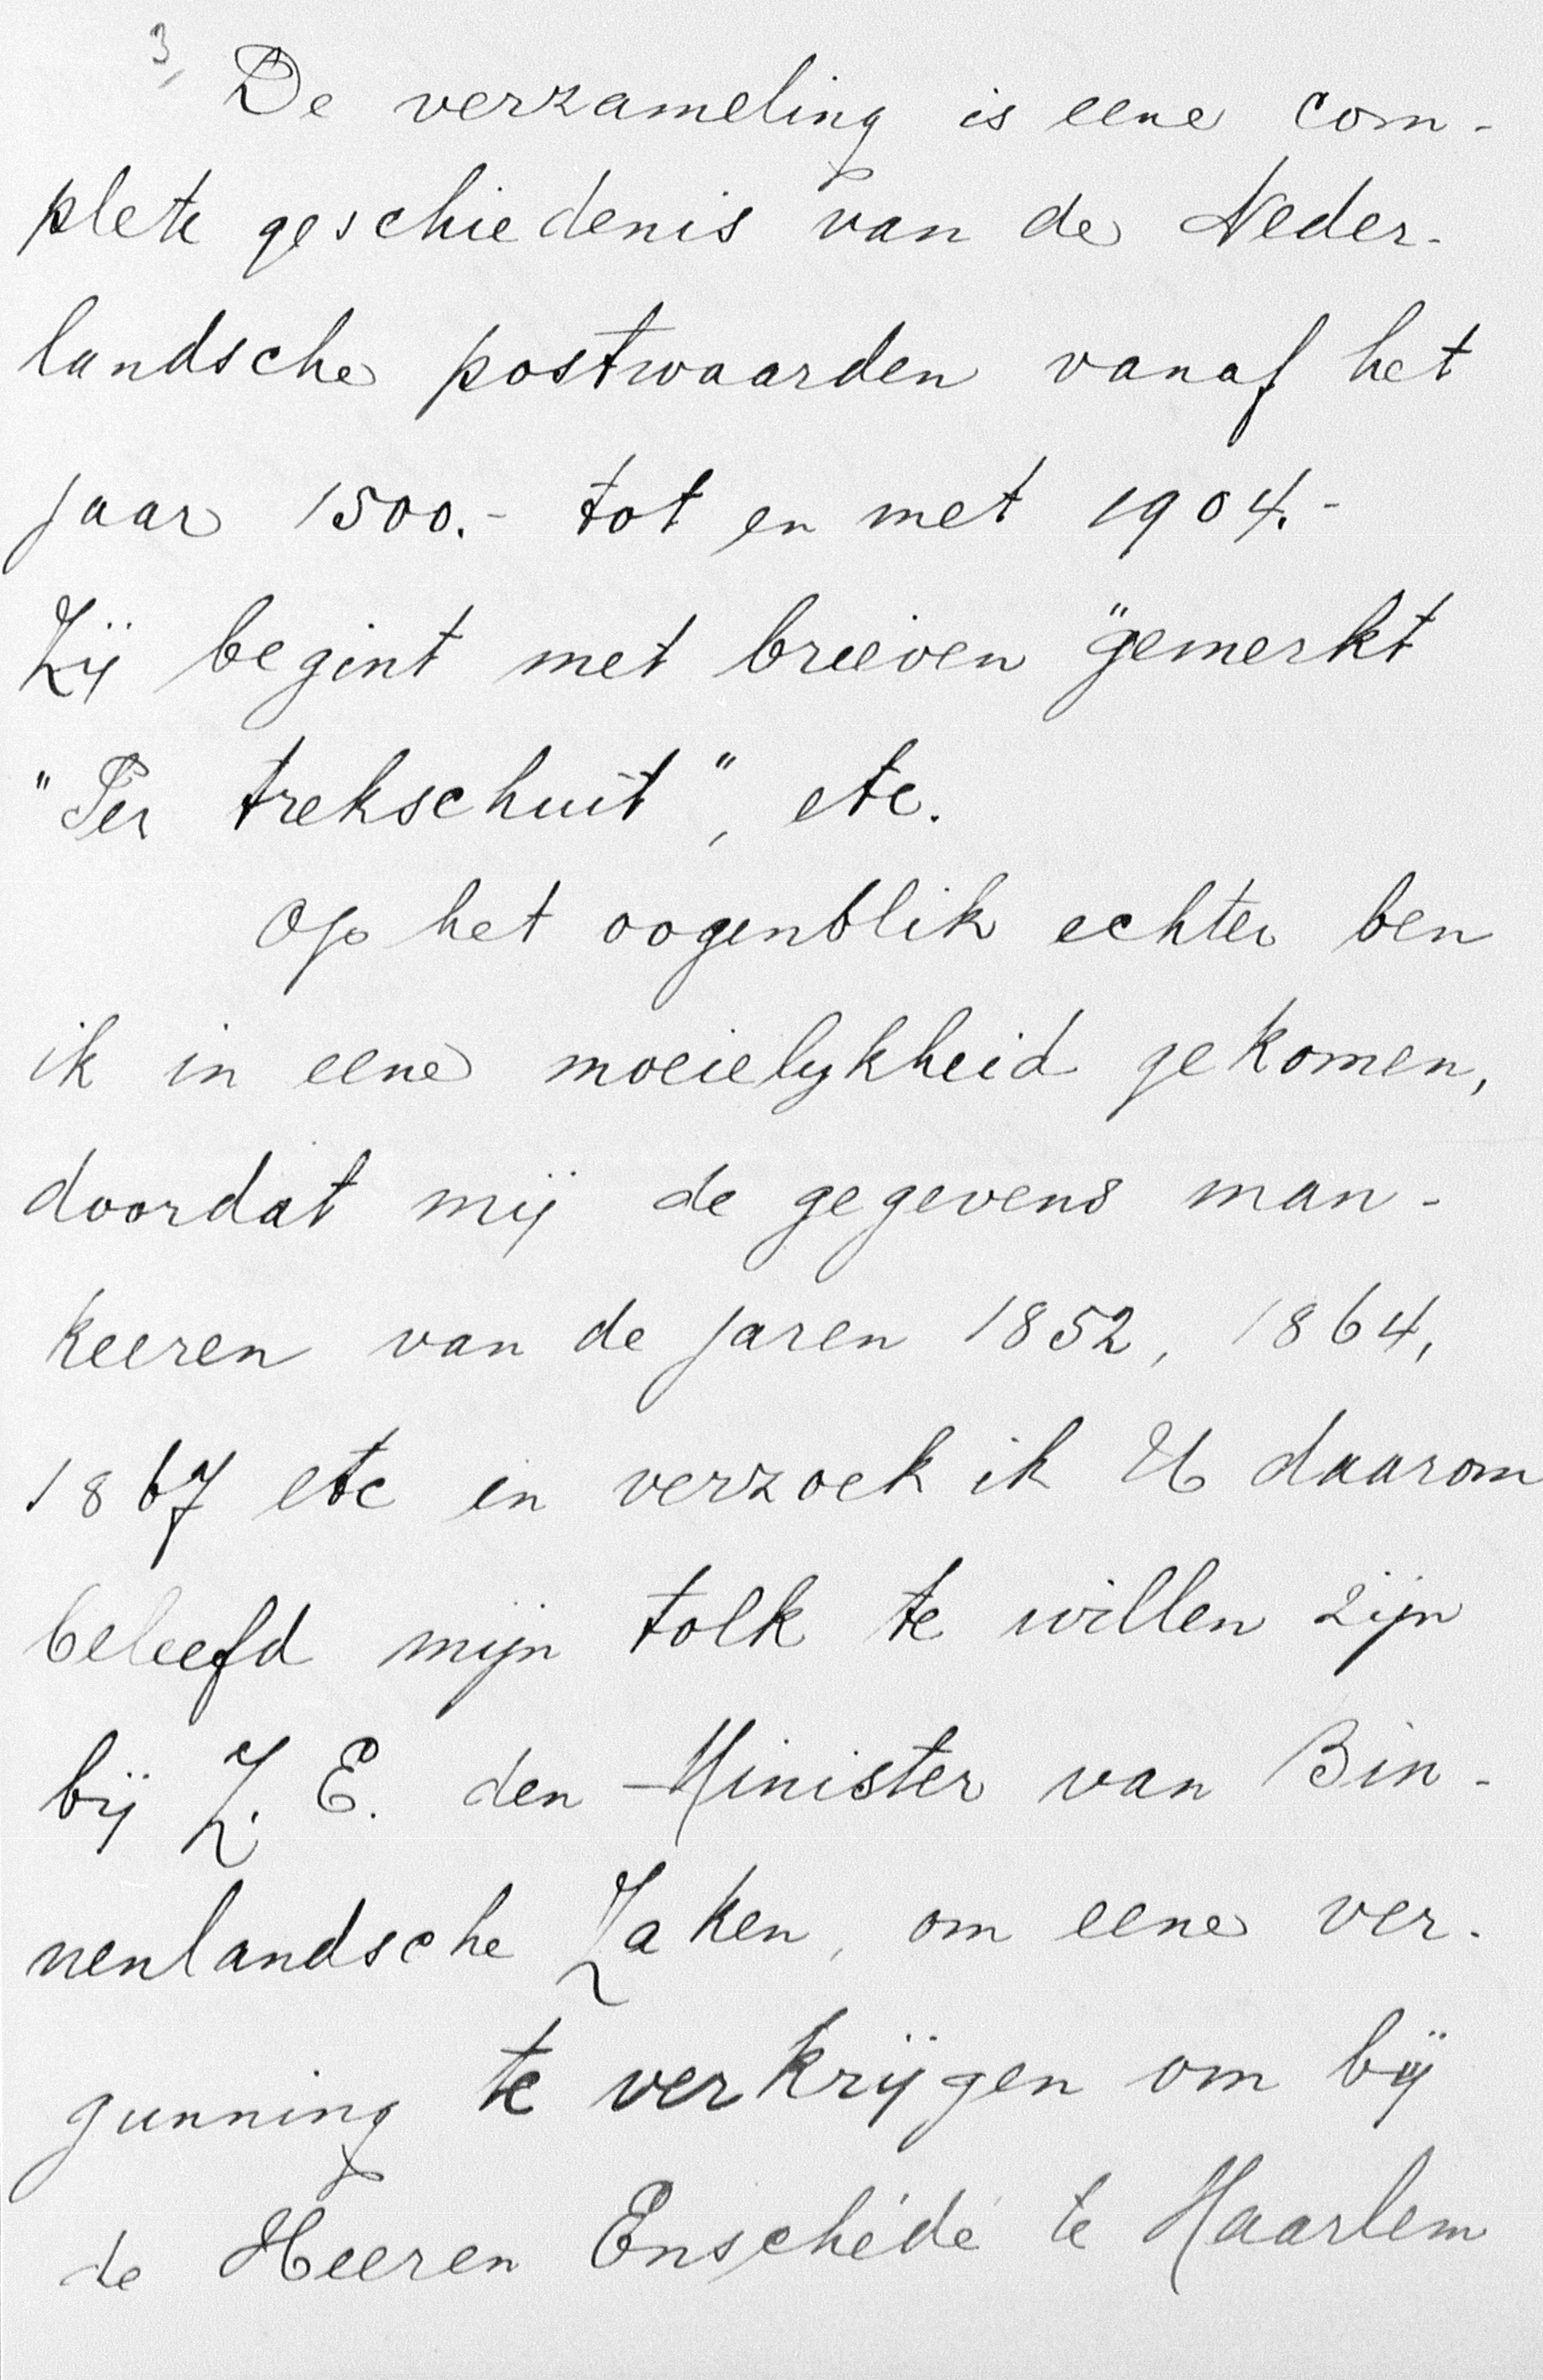 3,
De verzameling is eene com-
plete geschiedenis van de Neder-
landsche postwaarden vanaf het
jaar 1500.- tot en met 1904.-
Zij begint met brieven "gemerkt
"Per trekschuit", etc.
Op het oogenblik echter ben
ik in eene moeielykheid gekomen,
doordat mij de gegevens man-
keeren van de jaren 1852, 1864,
1867 etc en verzoek ik U daarom
beleefd mijn tolk te willen zijn
bij Z. E. den Minister van Bin-
nenlandsche Zaken, om eene ver-
gunning te verkrijgen om bij
de Heeren Enschédé te Haarlem